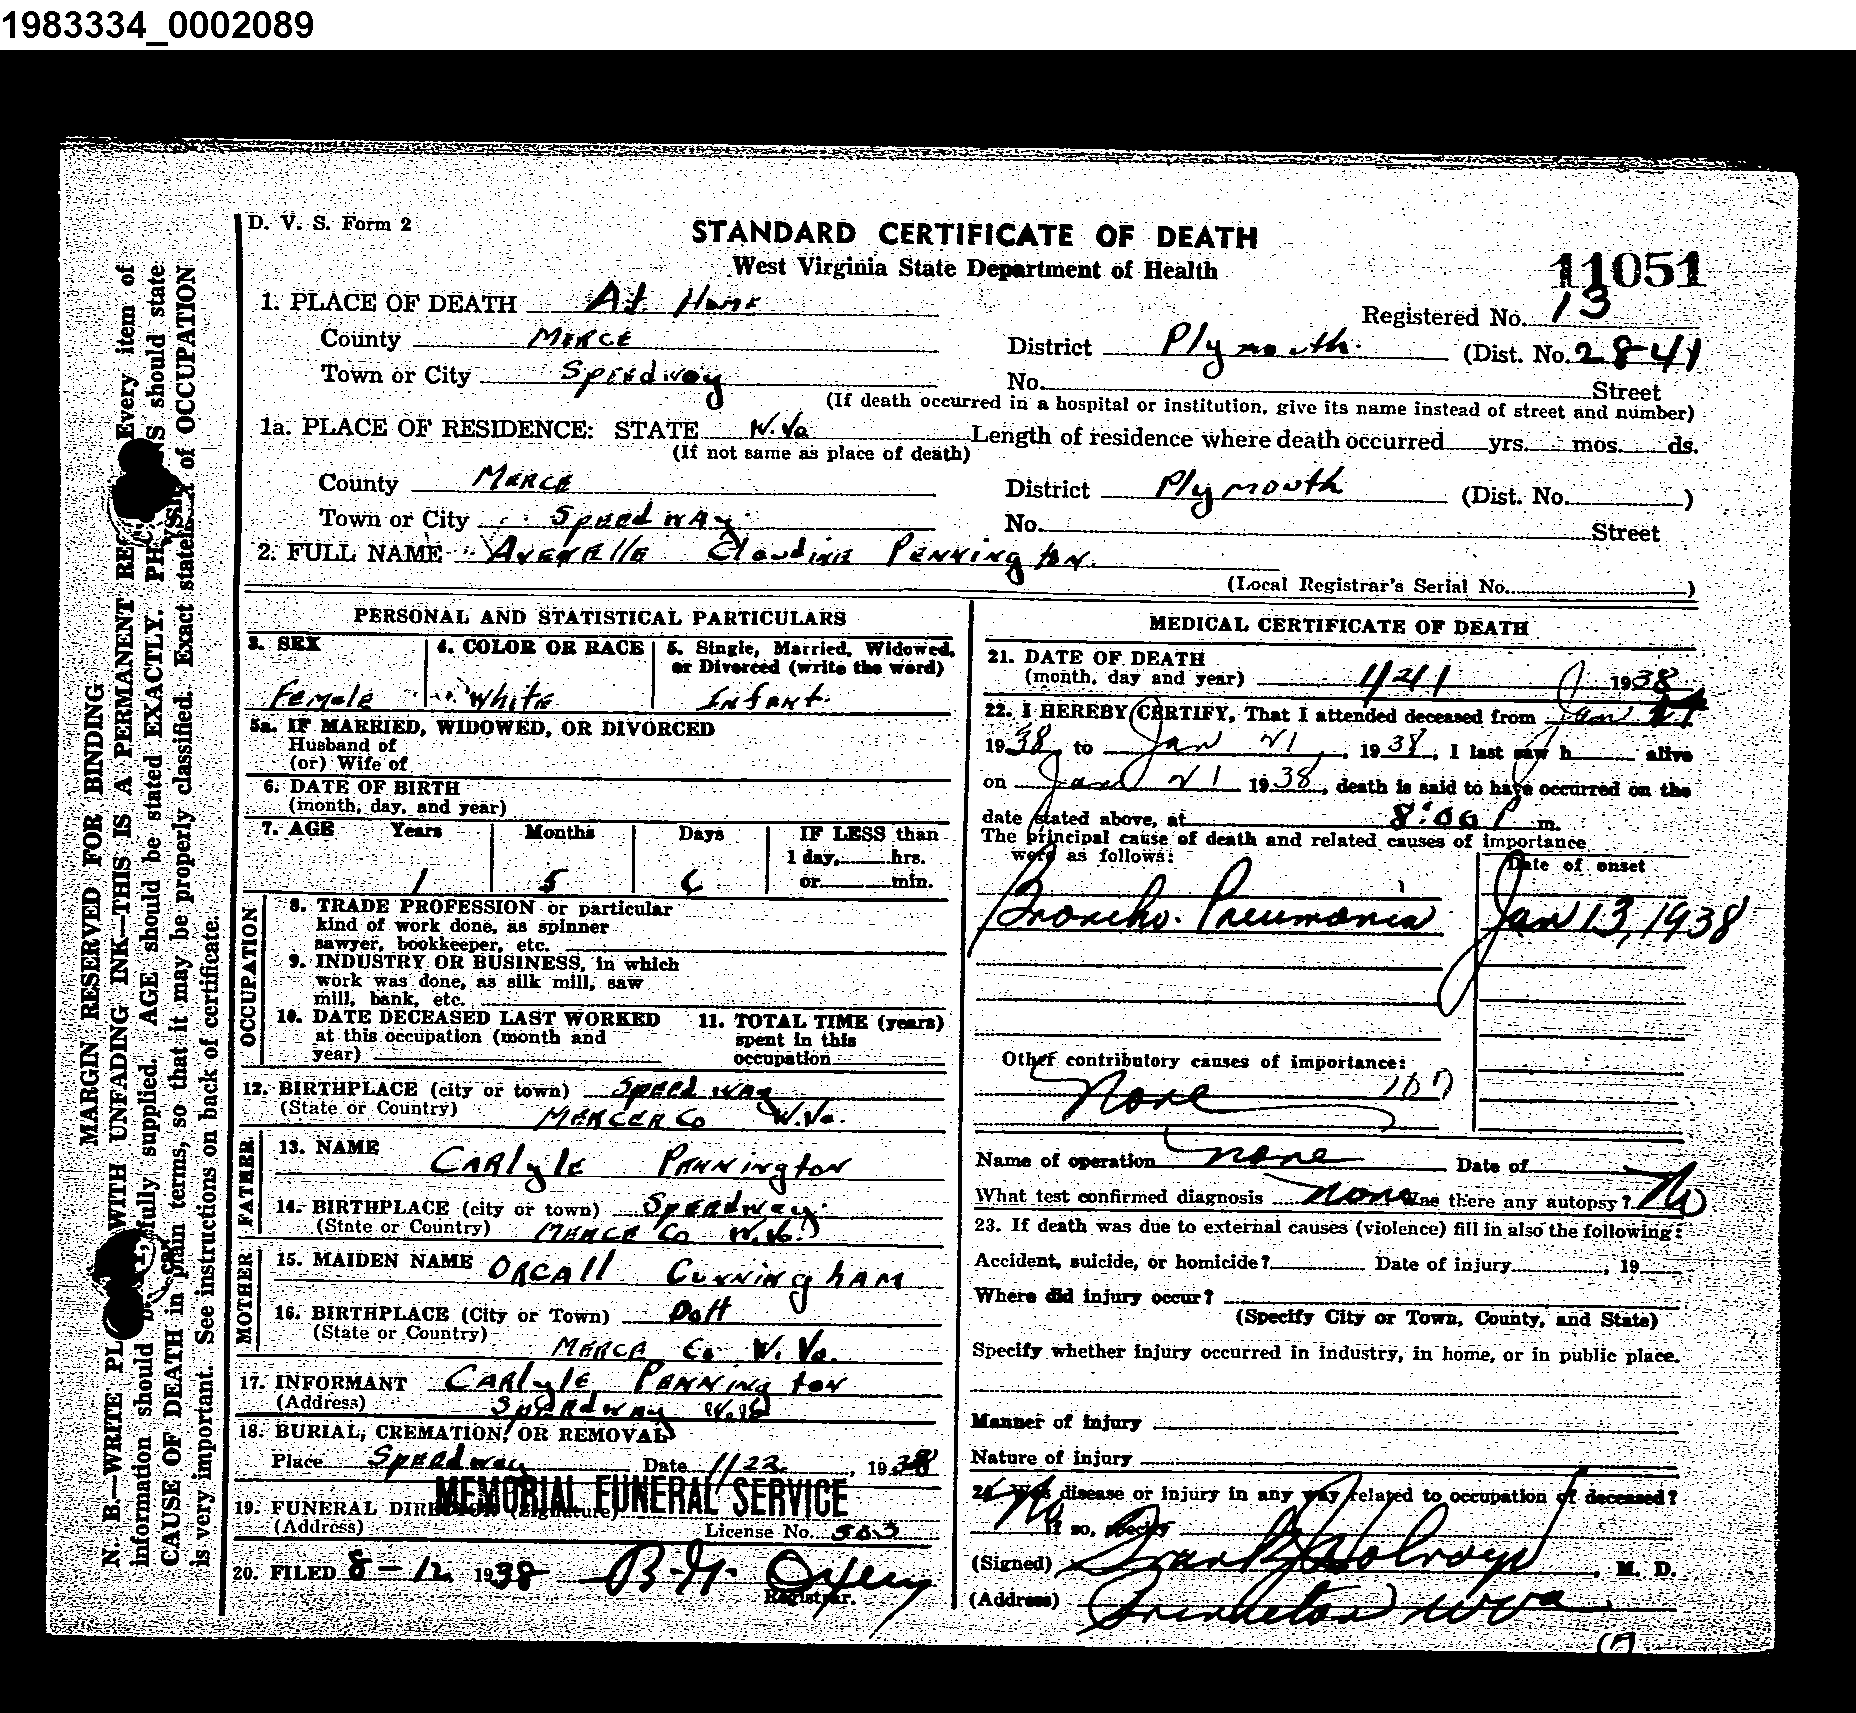 1983334_0002089
D. V. S. Form 2
STANDARD CERTIFICATE OF DEATH
West Virginia State Department of Health
11051
1. PLACE OF DEATH At Home
Registered No. 13
County Merce
District Plymouth (Dist. No. 28-41
Town or City Speedway
No. Street
(If death occurred in a hospital or institution, give its name instead of street and number)
1a. PLACE OF RESIDENCE: STATE W. Va Length of residence where death occurred yrs. mos. ds.
(If not same as place of death)
County Merce
District Plymouth (Dist. No. )
Town or City Speedway
No. Street
2. FULL NAME Avenelle Claudine Pennington
(Local Registrar's Serial No. )
PERSONAL AND STATISTICAL PARTICULARS
3. SEX Female
4. COLOR OR RACE White
5. Single, Married, Widowed, or Divorced (write the word) Infant
5a. IF MARRIED, WIDOWED, OR DIVORCED
Husband of
(or) Wife of
6. DATE OF BIRTH
(month, day, and year)
7. AGE Years Months Days IF LESS than
1 day, hrs.
1 5 6 or min.
OCCUPATION
8. TRADE PROFESSION or particular
kind of work done, as spinner
sawyer, bookkeeper, etc.
9. INDUSTRY OR BUSINESS, in which
work was done, as silk mill, saw
mill, bank, etc.
10. DATE DECEASED LAST WORKED
at this occupation (month and
year)
11. TOTAL TIME (years)
spent in this
occupation
12. BIRTHPLACE (city or town) Speedway
(State or Country) Mercer Co W. Va.
FATHER
13. NAME Carlyle Pennington
14. BIRTHPLACE (city or town) Speedway
(State or Country) Merce Co W. Va.
MOTHER
15. MAIDEN NAME Orcall Cunningham
16. BIRTHPLACE (City or Town) Dott
(State or Country) Merce Co. W. Va.
17. INFORMANT Carlyle Pennington
(Address) Speedway W. Va
18. BURIAL, CREMATION, OR REMOVAL
Place Speedway Date 1/22, 1938
MEMORIAL FUNERAL SERVICE
19. FUNERAL DIRECTOR (Signature)
(Address) License No. 503
20. FILED 8-12, 1938 B. H. Oxley
Registrar.
MEDICAL CERTIFICATE OF DEATH
21. DATE OF DEATH
(month, day and year) 1/21 1938
22. I HEREBY CERTIFY, That I attended deceased from Jan 21
1938, to Jan 21, 1938, I last saw h alive
on Jan 21 1938, death is said to have occurred on the
date stated above, at 8:00 P m.
The principal cause of death and related causes of importance
were as follows:
Date of onset
Broncho-Pneumonia Jan 13, 1938
Other contributory causes of importance:
None 107
Name of operation none Date of
What test confirmed diagnosis none Was there any autopsy? No
23. If death was due to external causes (violence) fill in also the following:
Accident, suicide, or homicide? Date of injury , 19
Where did injury occur?
(Specify City or Town, County, and State)
Specify whether injury occurred in industry, in home, or in public place.
Manner of injury
Nature of injury
24. Was disease or injury in any way related to occupation of deceased?
No If so, specify
(Signed) Frank J Holroyd, M. D.
(Address) Princeton W Va
MARGIN RESERVED FOR BINDING
N. B.—WRITE PL WITH UNFADING INK—THIS IS A PERMANENT REC Every item of
information should fully supplied. AGE should be stated EXACTLY. should state
CAUSE OF DEATH in plain terms, so that it may be properly classified. Exact of OCCUPATION
is very important. See instructions on back of certificate.